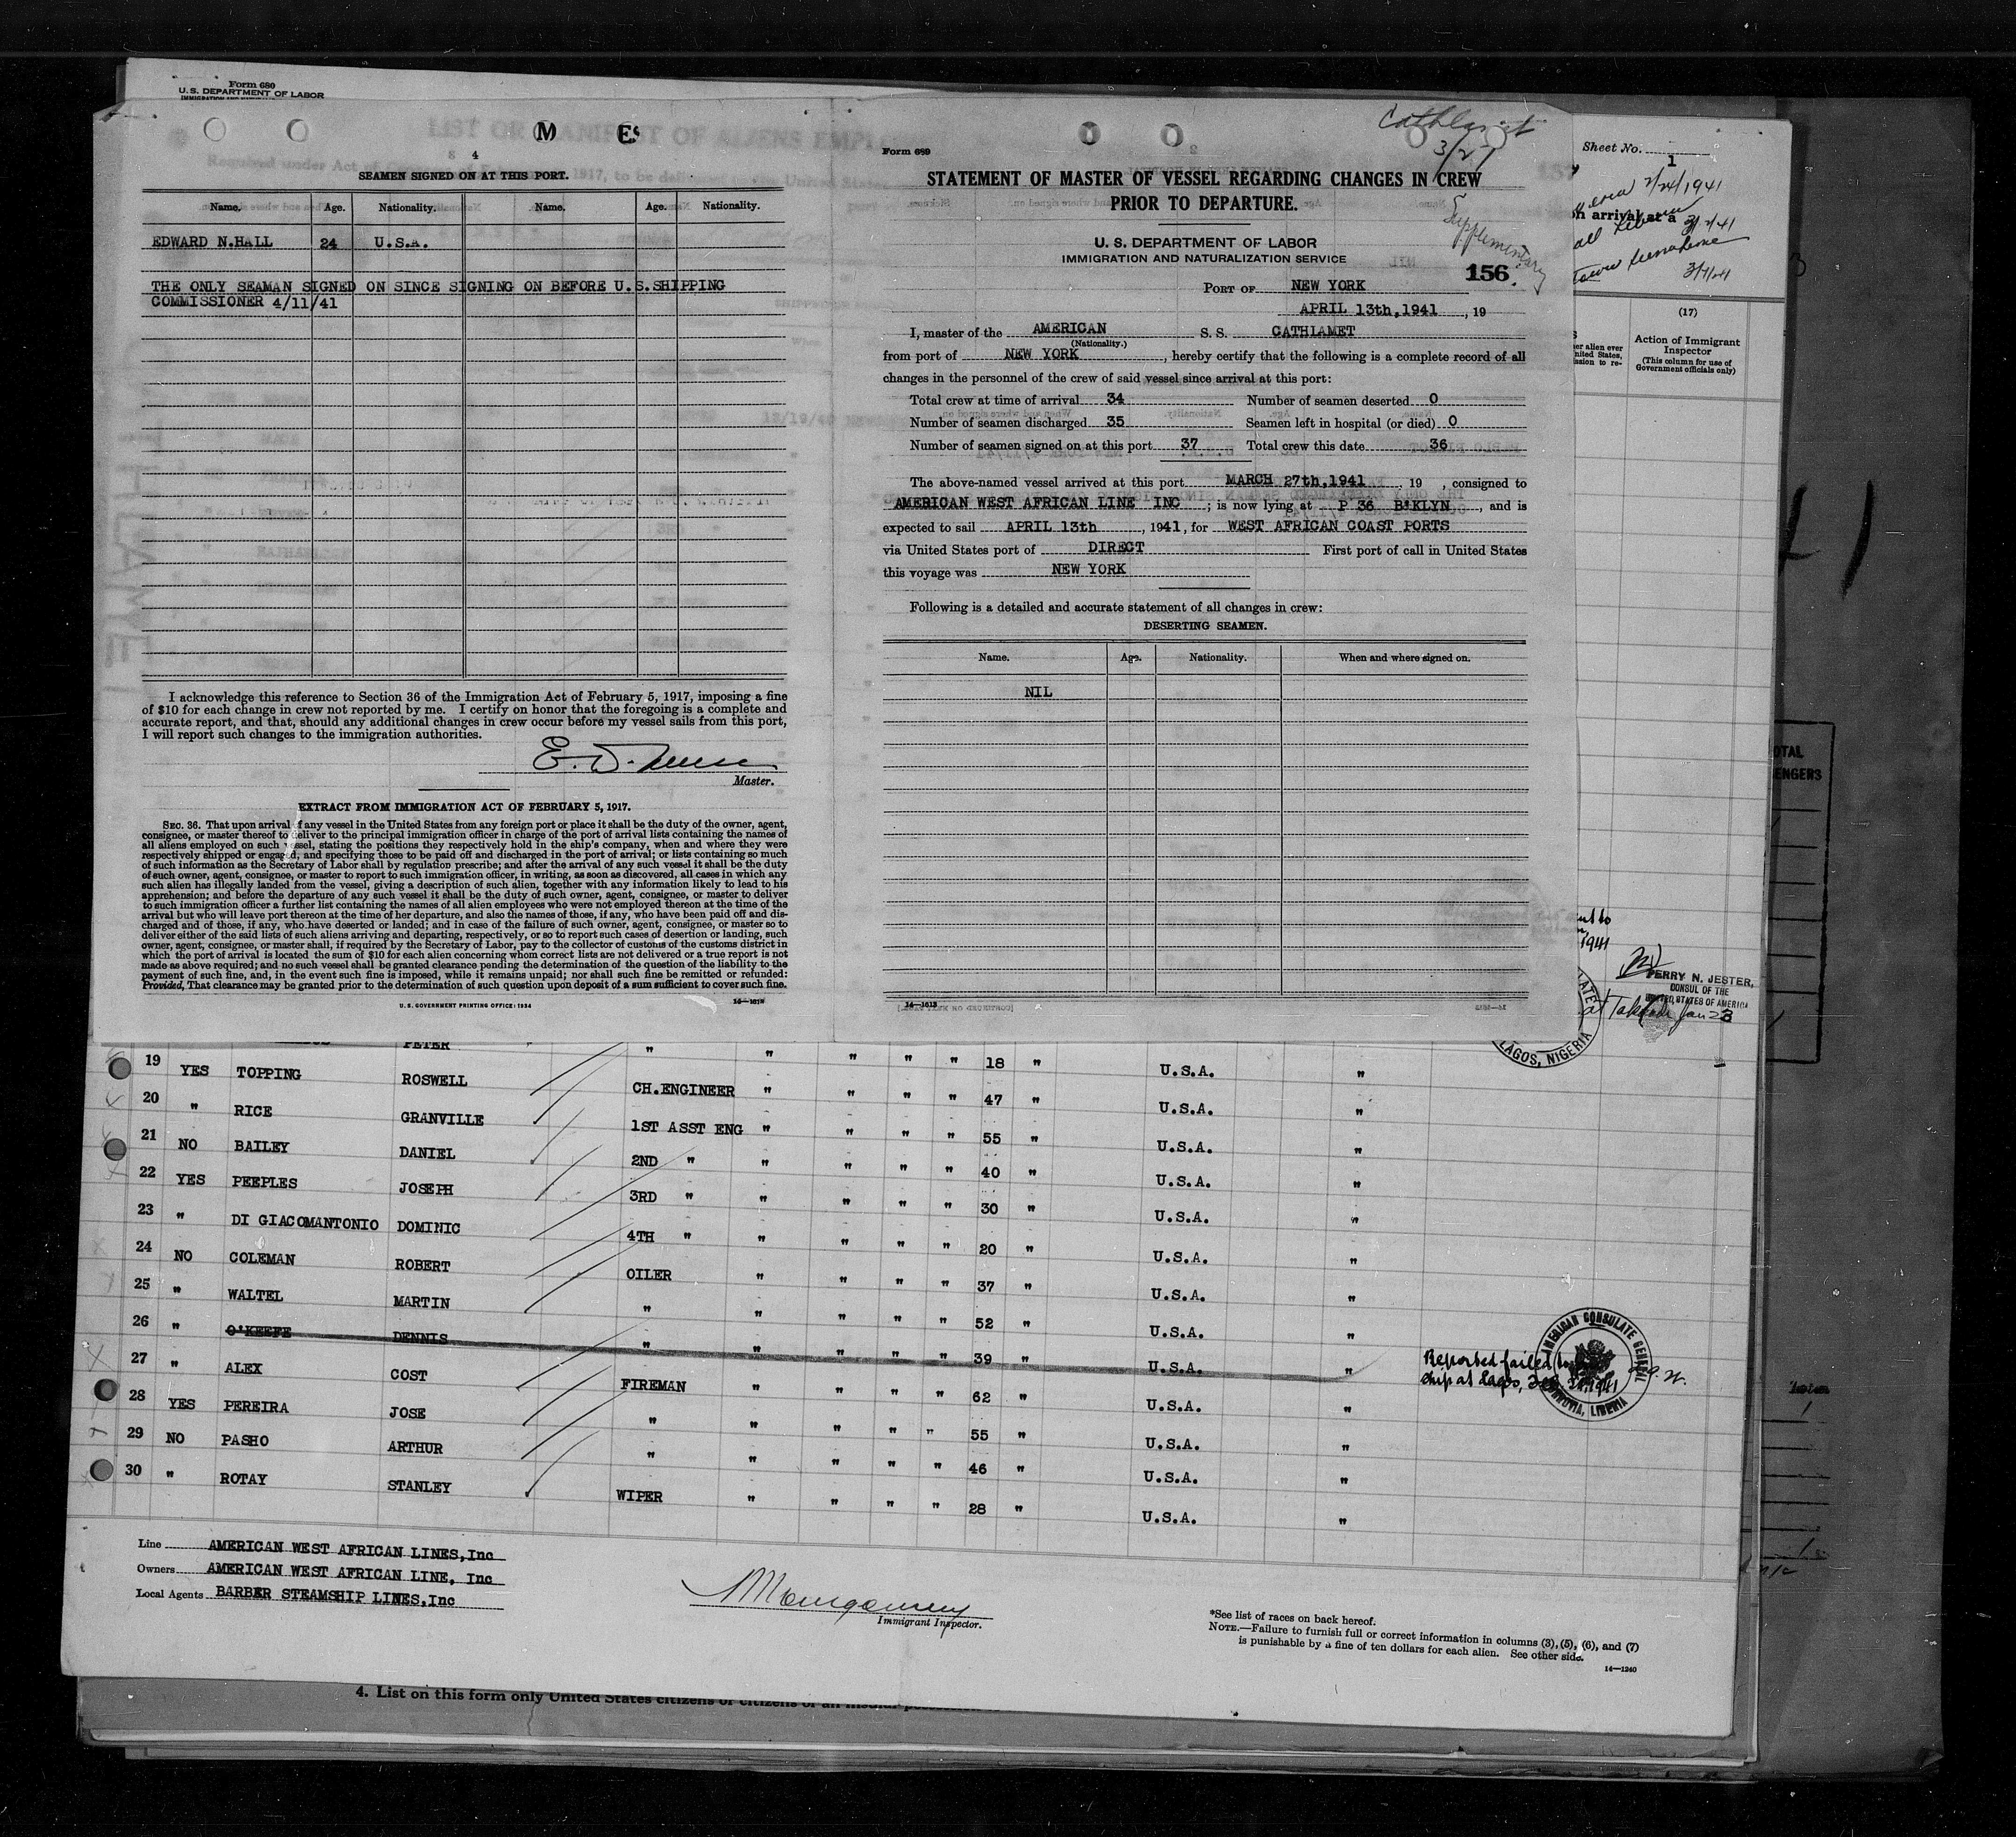 Form 680
U. S. DEPARTMENT OF LABOR
M E
S 4
SEAMEN SIGNED ON AT THIS PORT.
Name. Age. Nationality. Name. Age. Nationality.
EDWARD N.HALL 24 U.S.A.
THE ONLY SEAMAN SIGNED ON SINCE SIGNING ON BEFORE U.S.SHIPPING
COMMISSIONER 4/11/41
I acknowledge this reference to Section 36 of the Immigration Act of February 5, 1917, imposing a fine
of $10 for each change in crew not reported by me. I certify on honor that the foregoing is a complete and
accurate report, and that, should any additional changes in crew occur before my vessel sails from this port,
I will report such changes to the immigration authorities.
Master.
EXTRACT FROM IMMIGRATION ACT OF FEBRUARY 5, 1917.
SEC. 36. That upon arrival of any vessel in the United States from any foreign port or place it shall be the duty of the owner, agent,
consignee, or master thereof to deliver to the principal immigration officer in charge of the port of arrival lists containing the names of
all aliens employed on such vessel, stating the positions they respectively hold in the ship's company, when and where they were
respectively shipped or engaged, and specifying those to be paid off and discharged in the port of arrival; or lists containing so much
of such information as the Secretary of Labor shall by regulation prescribe; and after the arrival of any such vessel it shall be the duty
of such owner, agent, consignee, or master to report to such immigration officer, in writing, as soon as discovered, all cases in which any
such alien has illegally landed from the vessel, giving a description of such alien, together with any information likely to lead to his
apprehension; and before the departure of any such vessel it shall be the duty of such owner, agent, consignee, or master to deliver
to such immigration officer a further list containing the names of all alien employees who were not employed thereon at the time of the
arrival but who will leave port thereon at the time of her departure, and also the names of those, if any, who have been paid off and dis-
charged and of those, if any, who have deserted or landed; and in case of the failure of such owner, agent, consignee, or master so to
deliver either of the said lists of such aliens arriving and departing, respectively, or so to report such cases of desertion or landing, such
owner, agent, consignee, or master shall, if required by the Secretary of Labor, pay to the collector of customs of the customs district in
which the port of arrival is located the sum of $10 for each alien concerning whom correct lists are not delivered or a true report is not
made as above required; and no such vessel shall be granted clearance pending the determination of the question of the liability to the
payment of such fine, and, in the event such fine is imposed, while it remains unpaid; nor shall such fine be remitted or refunded:
Provided, That clearance may be granted prior to the determination of such question upon deposit of a sum sufficient to cover such fine.
U. S. GOVERNMENT PRINTING OFFICE: 1934
Form 689
3/21
STATEMENT OF MASTER OF VESSEL REGARDING CHANGES IN CREW
PRIOR TO DEPARTURE.
Supplementary
U. S. DEPARTMENT OF LABOR
IMMIGRATION AND NATURALIZATION SERVICE
156.
PORT OF NEW YORK
APRIL 13th,1941, 19
I, master of the AMERICAN S. S. CATHLAMET
(Nationality.)
from port of NEW YORK, hereby certify that the following is a complete record of all
changes in the personnel of the crew of said vessel since arrival at this port:
Total crew at time of arrival 34 Number of seamen deserted 0
Number of seamen discharged 35 Seamen left in hospital (or died) 0
Number of seamen signed on at this port 37 Total crew this date 36
The above-named vessel arrived at this port MARCH 27th,1941, 19 , consigned to
AMERICAN WEST AFRICAN LINE INC ; is now lying at P 36 B'KLYN, and is
expected to sail APRIL 13th, 1941, for WEST AFRICAN COAST PORTS
via United States port of DIRECT First port of call in United States
this voyage was NEW YORK
Following is a detailed and accurate statement of all changes in crew:
DESERTING SEAMEN.
Name. Age. Nationality. When and where signed on.
NIL
14—1613
Sheet No. 1
2/24/1941
on arrival at a
3/1/41
(17)
Action of Immigrant
Inspector
(This column for use of
Government officials only)
PERRY N. JESTER,
CONSUL OF THE
UNITED STATES OF AMERICA
LAGOS, NIGERIA
PETER " " " " " 18 " U.S.A. "
19 YES TOPPING ROSWELL CH.ENGINEER " " " " 47 " U.S.A. "
20 " RICE GRANVILLE 1ST ASST ENG " " " " 55 " U.S.A. "
21 NO BAILEY DANIEL 2ND " " " " " 40 " U.S.A. "
22 YES PEEPLES JOSEPH 3RD " " " " " 30 " U.S.A. "
23 " DI GIACOMANTONIO DOMINIC 4TH " " " " " 20 " U.S.A. "
24 NO COLEMAN ROBERT OILER " " " " 37 " U.S.A. "
25 " WALTEL MARTIN " " " " " 52 " U.S.A. "
26 " O'KEEFE DENNIS " " " " " 39 " U.S.A. "
Reported failed
ship at Lagos, Feb. 1941
AMERICAN CONSULATE GENERAL
MONROVIA, LIBERIA
27 " ALEX COST FIREMAN " " " " 62 " U.S.A. "
28 YES PEREIRA JOSE " " " " " 55 " U.S.A. "
29 NO PASHO ARTHUR " " " " " 46 " U.S.A. "
30 " ROTAY STANLEY WIPER " " " " 28 " U.S.A. "
Line AMERICAN WEST AFRICAN LINES,Inc
Owners AMERICAN WEST AFRICAN LINE, Inc
Local Agents BARBER STEAMSHIP LINES,Inc
Montgomery
Immigrant Inspector.
*See list of races on back hereof.
NOTE.—Failure to furnish full or correct information in columns (3), (5), (6), and (7)
is punishable by a fine of ten dollars for each alien. See other side.
14—1240
4. List on this form only United States citizens or citizens of